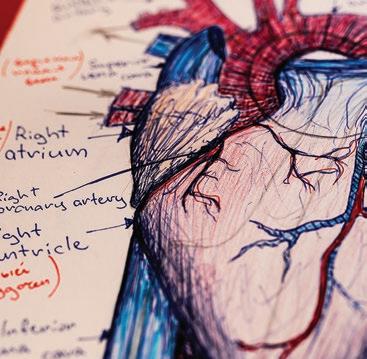 Superior
vena cava
Right
atrium
Right
coronary artery
Right
ventricle
Inferior
vena cava